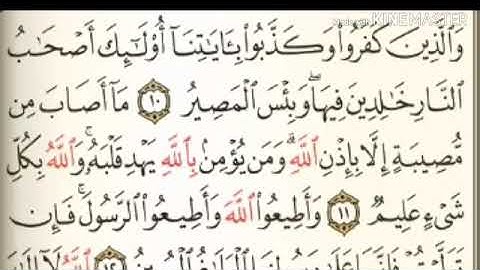 KINEMASTER
وَالَّذِينَ كَفَرُوا وَكَذَّبُوا بِآيَاتِنَا أُولَٰئِكَ أَصْحَابُ
النَّارِ خَالِدِينَ فِيهَا ۖ وَبِئْسَ الْمَصِيرُ ١٠ مَا أَصَابَ مِن
مُّصِيبَةٍ إِلَّا بِإِذْنِ اللَّهِ ۗ وَمَن يُؤْمِن بِاللَّهِ يَهْدِ قَلْبَهُ ۚ وَاللَّهُ بِكُلِّ
شَيْءٍ عَلِيمٌ ١١ وَأَطِيعُوا اللَّهَ وَأَطِيعُوا الرَّسُولَ ۚ فَإِن
تَوَلَّيْتُمْ فَإِنَّمَا عَلَىٰ رَسُولِنَا الْبَلَاغُ الْمُبِينُ ١٢ اللَّهُ لَا إِلَٰهَ